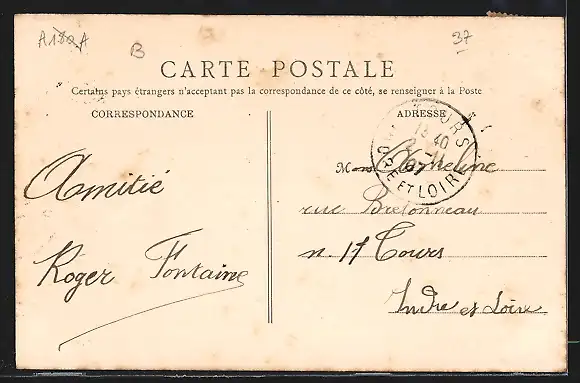 A180A
B
37
CARTE POSTALE
Certains pays étrangers n'acceptant pas la correspondance de ce côté, se renseigner à la Poste
CORRESPONDANCE
ADRESSE
TOURS
18 40
07
INDRE ET LOIRE
Amitié
Roger Fontaine
M
rue Bretonneau
n. 17 Tours
Indre et Loire